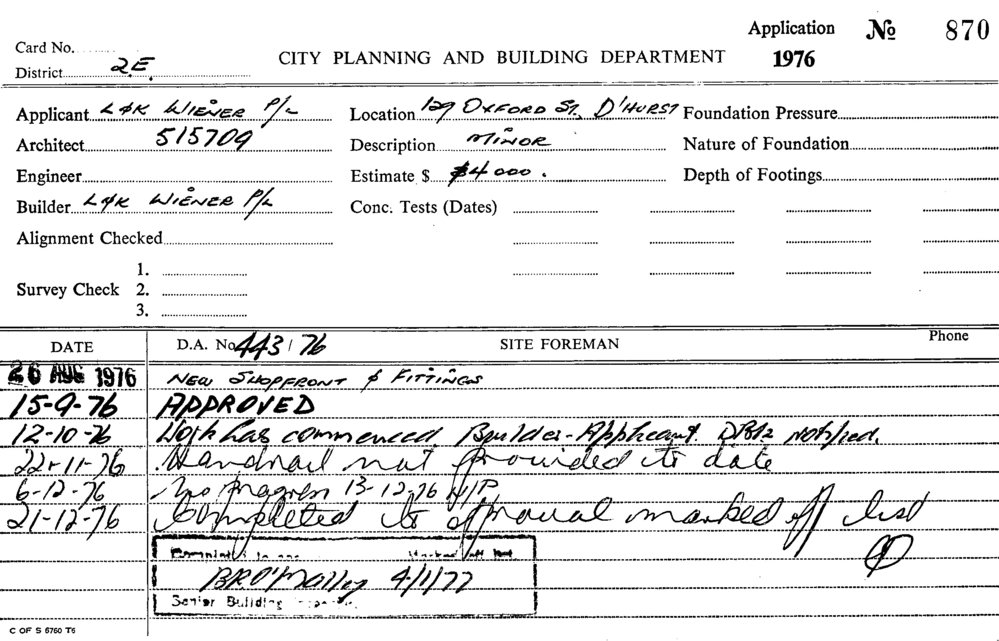 Application № 870
Card No.
District 2.E. CITY PLANNING AND BUILDING DEPARTMENT 1976
Applicant L & K WIENER P/L Location 129 OXFORD ST. D'HURST Foundation Pressure
Architect 515709 Description MINOR Nature of Foundation
Engineer Estimate $ $4000. Depth of Footings
Builder L & K WIENER P/L Conc. Tests (Dates)
Alignment Checked
1.
Survey Check 2.
3.
DATE D.A. No 443/76 SITE FOREMAN Phone
26 AUG 1976 NEW SHOPFRONT & FITTINGS
15-9-76 APPROVED
12-10-76 Work has commenced. Builder-Applicant. notified.
22-11-76 Handrail not provided to date
6-12-76 No progress 13-12-76 N/P
21-12-76 Completed to approval marked off list
Marked off list
BR O'Malley 4/1/77
Senior Building
C OF S 6760 T6